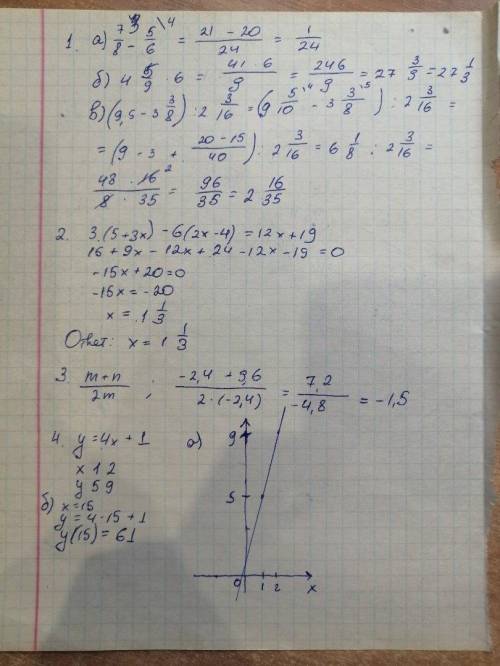 1. а) 7/8 \3 - 5/6 \4 = (21 - 20)/24 = 1/24
б) 4 5/9 · 6 = (41 · 6)/9 = 246/9 = 27 3/9 = 27 1/3
в) (9,5 - 3 3/8) : 2 3/16 = (9 5/10 \4 - 3 3/8 \5) : 2 3/16 =
= (9 - 3 + (20 - 15)/40) : 2 3/16 = 6 1/8 : 2 3/16 =
(48 · 16 2)/(8 · 35) = 96/35 = 2 16/35
2. 3·(5+3x) - 6(2x-4) = 12x+19
16 + 9x - 12x + 24 - 12x - 19 = 0
-15x + 20 = 0
-15x = -20
x = 1 1/3
Ответ: x = 1 1/3
3. (m+n)/2m ; (-2,4 + 9,6)/(2·(-2,4)) = 7,2/-4,8 = -1,5
4. y = 4x + 1 а)
x 1 2
y 5 9
б) x = 15
y = 4·15 + 1
y(15) = 61
9
5
0 1 2 x